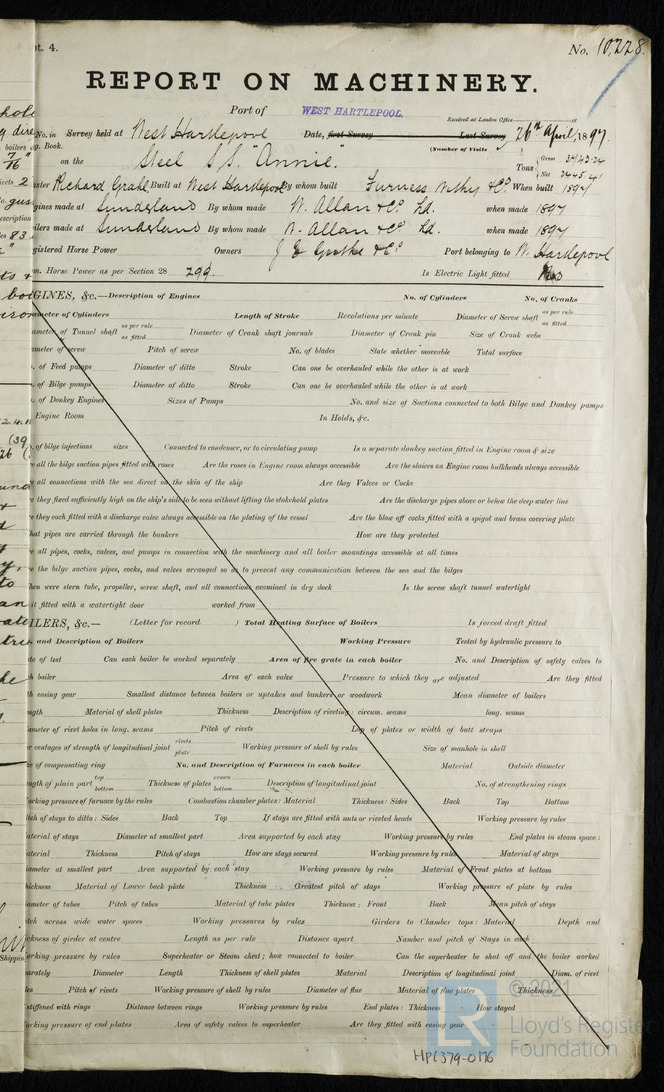 pt. 4. No. 10,228.
REPORT ON MACHINERY.
Port of WEST HARTLEPOOL
Received at London Office 18
No. in Survey held at West Hartlepool Date, first Survey Last Survey 26th April, 1897
g. Book. (Number of Visits
on the Steel S.S. "Annie". Tons Gross 3743.24 Net 2445.41
ster Richard Grahl Built at West Hartlepool By whom built Furness Withy & Co When built 1897
gines made at Sunderland By whom made W. Allan & Co. Ld. when made 1897
ilers made at Sunderland By whom made W. Allan & Co. Ld. when made 1897
gistered Horse Power Owners Port belonging to W. Hartlepool
m. Horse Power as per Section 28 299. Is Electric Light fitted No
GINES, &c.—Description of Engines No. of Cylinders No. of Cranks
ameter of Cylinders Length of Stroke Revolutions per minute Diameter of Screw shaft as per rule as fitted
ameter of Tunnel shaft as per rule as fitted Diameter of Crank shaft journals Diameter of Crank pin Size of Crank webs
ameter of screw Pitch of screw No. of blades State whether moveable Total surface
. of Feed pumps Diameter of ditto Stroke Can one be overhauled while the other is at work
. of Bilge pumps Diameter of ditto Stroke Can one be overhauled while the other is at work
. of Donkey Engines Sizes of Pumps No. and size of Suctions connected to both Bilge and Donkey pumps
Engine Room In Holds, &c.
. of bilge injections sizes Connected to condenser, or to circulating pump Is a separate donkey suction fitted in Engine room & size
re all the bilge suction pipes fitted with roses Are the roses in Engine room always accessible Are the sluices on Engine room bulkheads always accessible
re all connections with the sea direct on the skin of the ship Are they Valves or Cocks
re they fixed sufficiently high on the ship's side to be seen without lifting the stokehold plates Are the discharge pipes above or below the deep water line
re they each fitted with a discharge valve always accessible on the plating of the vessel Are the blow off cocks fitted with a spigot and brass covering plate
hat pipes are carried through the bunkers How are they protected
re all pipes, cocks, valves, and pumps in connection with the machinery and all boiler mountings accessible at all times
re the bilge suction pipes, cocks, and valves arranged so as to prevent any communication between the sea and the bilges
hen were stern tube, propeller, screw shaft, and all connections examined in dry dock Is the screw shaft tunnel watertight
it fitted with a watertight door worked from
ILERS, &c.— (Letter for record ) Total Heating Surface of Boilers Is forced draft fitted
. and Description of Boilers Working Pressure Tested by hydraulic pressure to
te of test Can each boiler be worked separately Area of fire grate in each boiler No. and Description of safety valves to
h boiler Area of each valve Pressure to which they are adjusted Are they fitted
h easing gear Smallest distance between boilers or uptakes and bunkers or woodwork Mean diameter of boilers
ngth Material of shell plates Thickness Description of riveting: circum. seams long. seams
ameter of rivet holes in long. seams Pitch of rivets Lap of plates or width of butt straps
r centages of strength of longitudinal joint rivets plate Working pressure of shell by rules Size of manhole in shell
ze of compensating ring No. and Description of Furnaces in each boiler Material Outside diameter
ngth of plain part top bottom Thickness of plates crown bottom Description of longitudinal joint No. of strengthening rings
orking pressure of furnace by the rules Combustion chamber plates: Material Thickness: Sides Back Top Bottom
itch of stays to ditto: Sides Back Top If stays are fitted with nuts or riveted heads Working pressure by rules
aterial of stays Diameter at smallest part Area supported by each stay Working pressure by rules End plates in steam space:
aterial Thickness Pitch of stays How are stays secured Working pressure by rules Material of stays
iameter at smallest part Area supported by each stay Working pressure by rules Material of Front plates at bottom
hickness Material of Lower back plate Thickness Greatest pitch of stays Working pressure of plate by rules
iameter of tubes Pitch of tubes Material of tube plates Thickness: Front Back Mean pitch of stays
itch across wide water spaces Working pressures by rules Girders to Chamber tops: Material Depth and
ickness of girder at centre Length as per rule Distance apart Number and pitch of Stays in each
orking pressure by rules Superheater or Steam chest; how connected to boiler Can the superheater be shut off and the boiler worked
parately Diameter Length Thickness of shell plates Material Description of longitudinal joint Diam. of rivet
les Pitch of rivets Working pressure of shell by rules Diameter of flue Material of flue plates Thickness
stiffened with rings Distance between rings Working pressure by rules End plates: Thickness How stayed
orking pressure of end plates Area of safety valves to superheater Are they fitted with easing gear
© 2021
Lloyd's Register
Foundation
LR
HPL379-0176